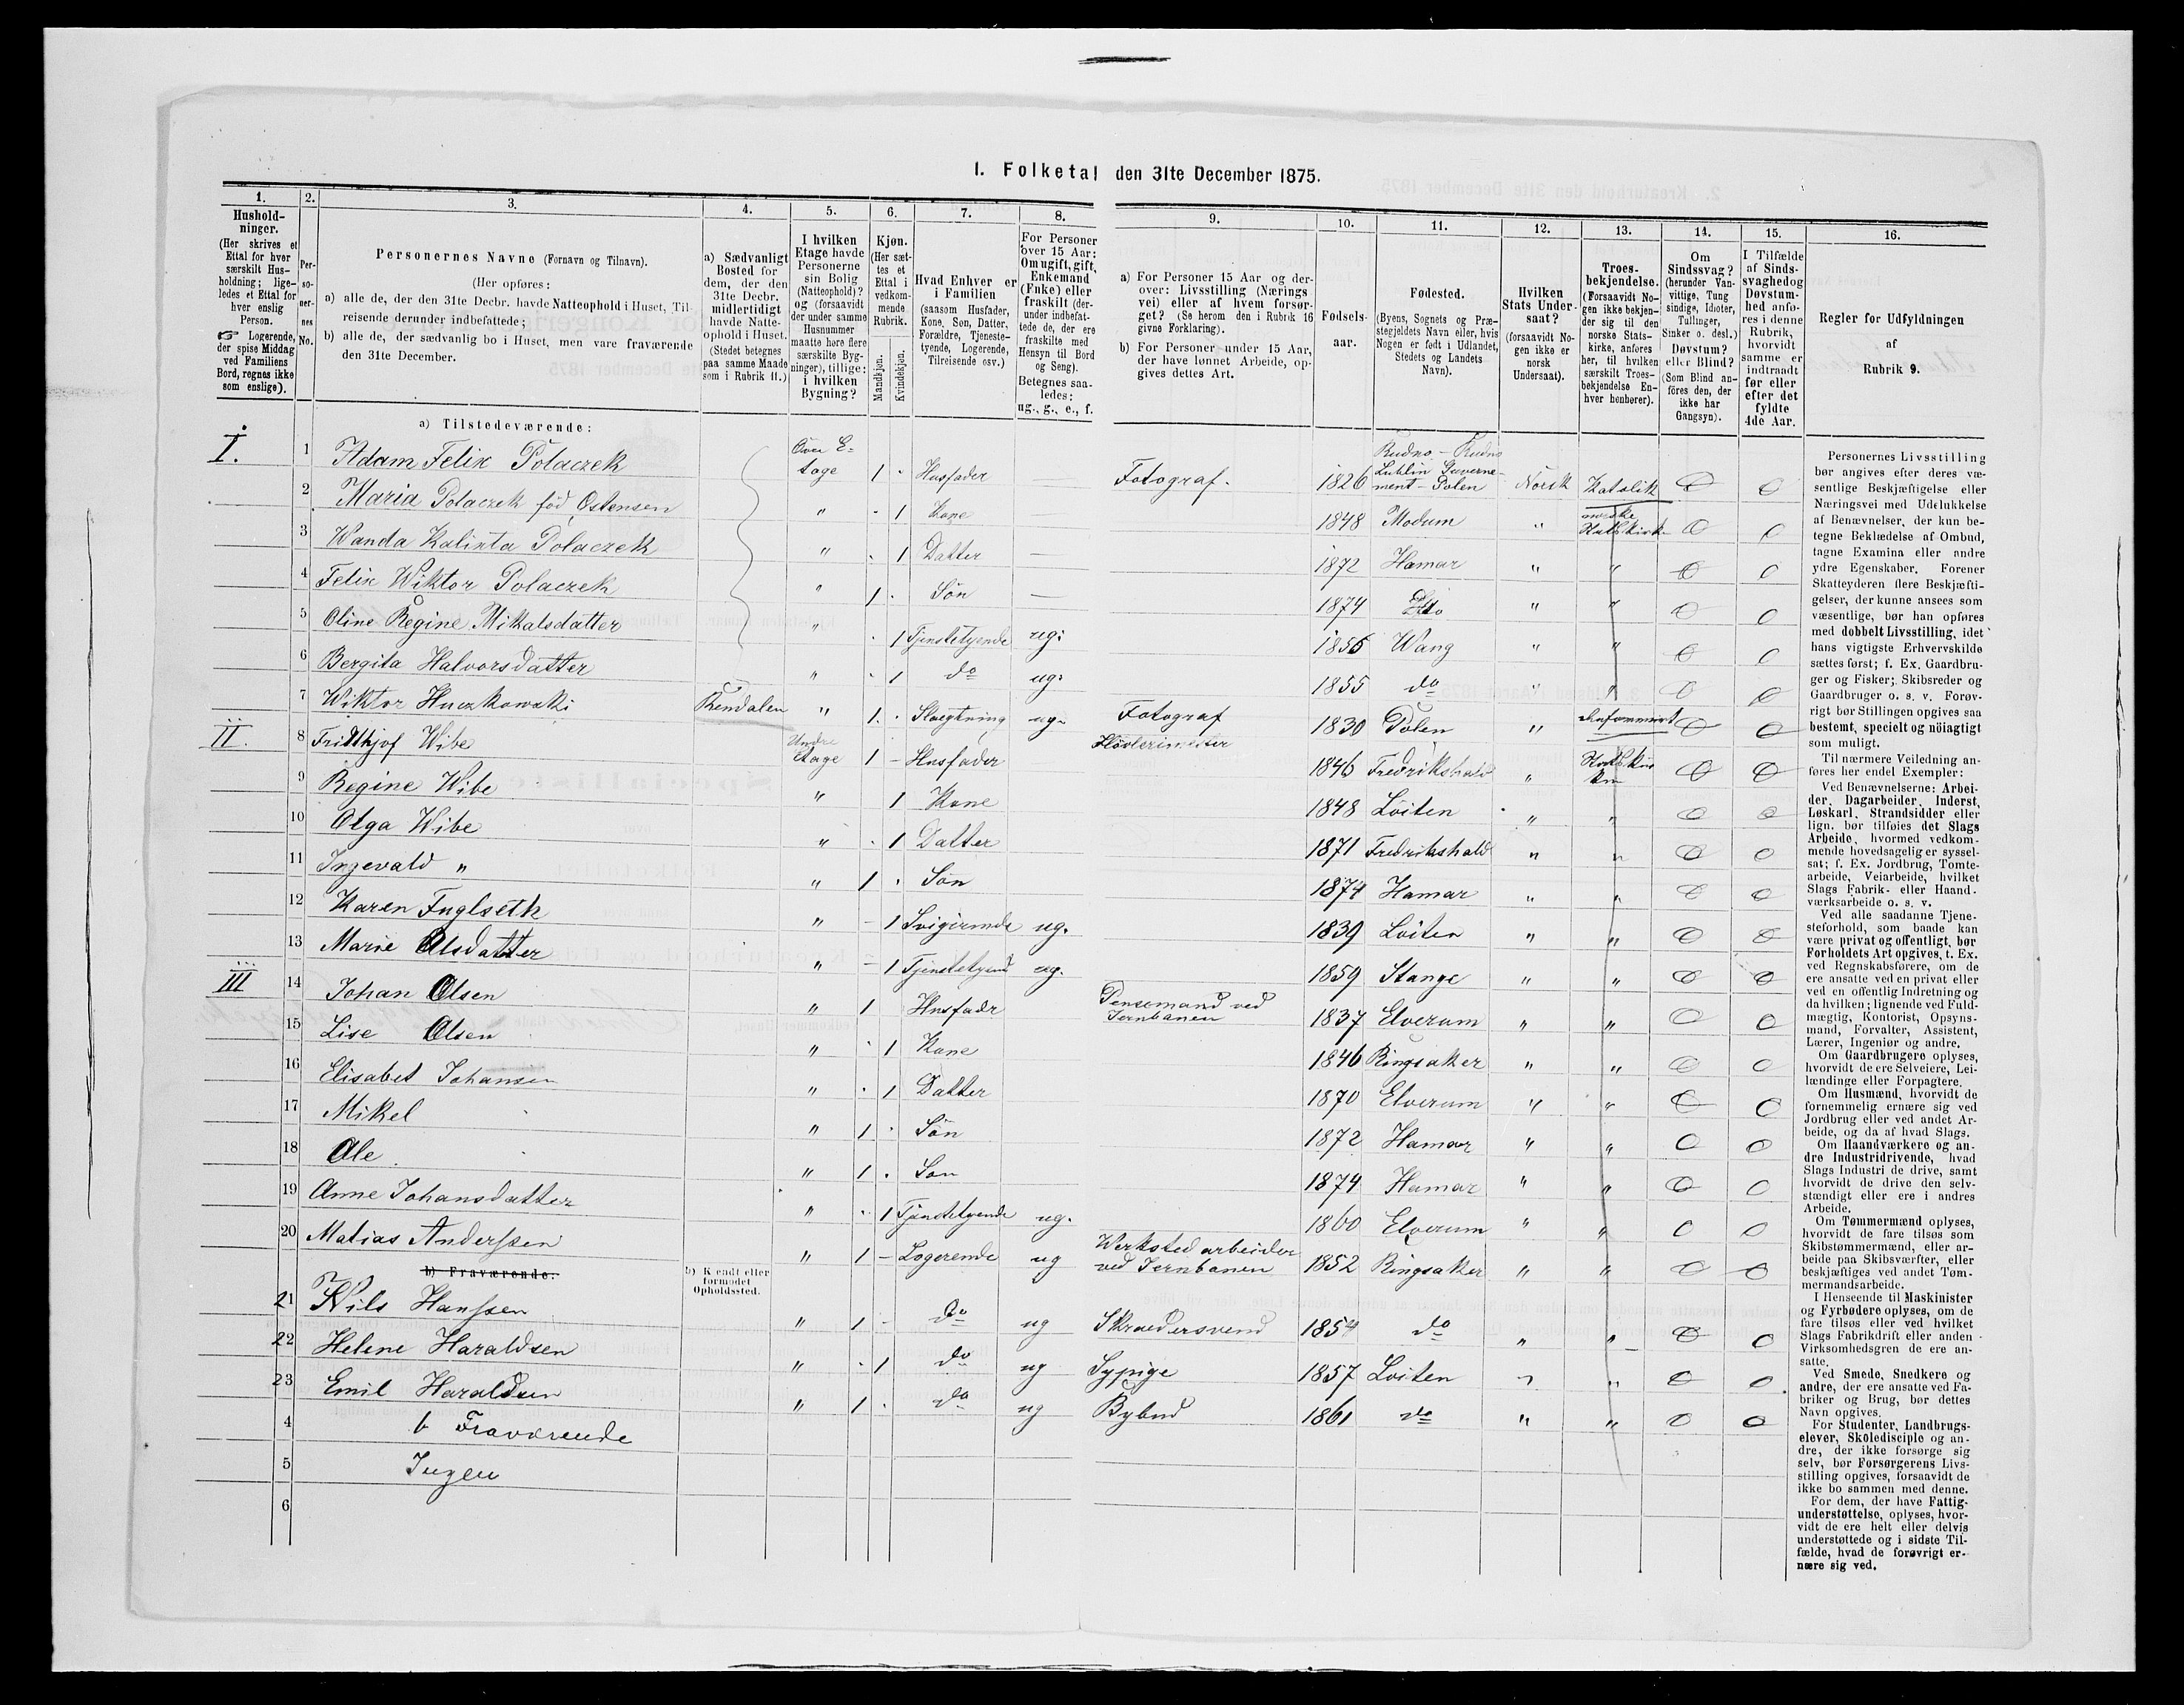 1. Folketal den 31te December 1875.
1. 2. 3. 4. 5. 6. 7. 8. 9. 10. 11. 12. 13. 14. 15. 16.
Hushold-
ninger.
(Her skrives et
Ettal for hver
særskilt Hus-
holdning; lige-
ledes et Ettal for
hver enslig
Person.
☞ Logerende,
der spise Middag
ved Familiens
Bord, regnes ikke
som enslige).
Per-
so-
ner-
nes
No.
Personernes Navne (Fornavn og Tilnavn).
(Her opføres:
a) alle de, der den 31te Decbr. havde Natteophold i Huset, Til-
reisende derunder indbefattede;
b) alle de, der sædvanlig bo i Huset, men vare fraværende
den 31te December.
a) Sædvanligt
Bosted for
dem, der den
31te Decbr.
midlertidigt
havde Natte-
ophold i Huset.
(Stedet betegnes
paa samme Maade
som i Rubrik 11.)
I hvilken
Etage havde
Personerne
sin Bolig
(Natteophold)?
og (forsaavidt
der under samme
Husnummer
maatte høre flere
særskilte Byg-
ninger), tillige:
i hvilken
Bygning?
Kjøn.
(Her sæt-
tes et
Ettal i
vedkom-
mende
Rubrik.
Mandkjøn.
Kvindekjøn.
Hvad Enhver er
i Familien
(saasom Husfader,
Kone, Søn, Datter,
Forældre, Tjeneste-
tyende, Logerende,
Tilreisende osv.)
For Personer
over 15 Aar:
Om ugift, gift,
Enkemand
(Enke) eller
fraskilt (der-
under indbefat-
tede de, der ere
fraskilte med
Hensyn til Bord
og Seng).
Betegnes saa-
ledes:
ug., g., e., f.
a) For Personer 15 Aar og der-
over: Livsstilling (Nærings
vei) eller af hvem forsør-
get? (Se herom den i Rubrik 16
givne Forklaring).
b) For Personer under 15 Aar,
der have lønnet Arbeide, op-
gives dettes Art.
Fødsels-
aar.
Fødested.
(Byens, Sognets og Præ-
stegjeldets Navn eller, hvis
Nogen er født i Udlandet,
Stedets og Landets
Navn).
Hvilken
Stats Under-
saat?
(forsaavidt No-
gen ikke er
norsk
Undersaat).
Troes-
bekjendelse.
(Forsaavidt No-
gen ikke bekjen-
der sig til den
norske Stats-
kirke, anføres
her, til hvilken
særskilt Troes-
bekjendelse En-
hver henhører).
Om
Sindssvag?
(herunder Van-
vittige, Tung
sindige, Idioter,
Tullinger,
Sinker o. desl.)
Døvstum?
eller Blind?
(Som Blind an-
føres den, der
ikke har
Gangsyn).
I Tilfælde
af Sinds-
svaghed og
Døvstum-
hed anfø-
res i denne
Rubrik,
hvorvidt
samme er
indtraadt
før eller
efter det
fyldte
4de Aar.
Regler for Udfyldningen
af
Rubrik 9.
a) Tilstedeværende:
I. 1 Adam Felix Polaczek Over E-tage 1 · Husfader — Fotograf. 1826 Rudno - Rudno Lublin Guvernement - Polen Norsk Katolik 0 0
2 Maria Polaczek föd Ostensen " · 1 Kone — 1848 Modum " norske Statskirke 0 0
3 Wanda Kalixta Polaczek " · 1 Datter — 1872 Hamar " " 0 0
4 Felix Wiktor Polaczek " 1 · Sön — 1874 Dto " " 0 0
5 Oline Regine Mikalsdatter " · 1 Tjenstetyende ug: 1856 Wang " " 0 0
6 Bergita Halvorsdatter " · 1 do ug: 1855 do " " 0 0
7 Wiktor Huczkowski Rendalen " 1 · Slægtning ug- Fotograf 1830 Polen " 0 0
II. 8 Fridthjof Wibe Undre Etage 1 - Husfader Hövlerimester 1846 Fredrikshald " 0 0
9 Regine Wibe " 1 Kone 1848 Löiten " " 0 0
10 Olga Wibe " · 1 Datter 1871 Fredrikshald " " 0 0
11 Ingevald " " 1 · Sön 1874 Hamar " " 0 0
12 Karen Fuglseth " - 1 ug. 1839 Löiten " " 0 0
13 Marie Olsdatter " - 1 Tjenstetyend ug. 1859 Stange " " 0 0
III 14 Johan Olsen " 1 Husfadr Pensemand ved Jernbanen 1837 Elverum " " 0 0
15 Lise Olsen " · 1 Kone 1846 Ringsaker " " 0 0
16 Elisabet Johansen " · 1 Datter 1870 Elverum " " 0 0
17 Mikel " 1 · Sön 1872 Hamar " " 0 0
18 Ole " 1 · Son 1874 Hamar " " 0 0
19 Anne Johansdatter " · 1 Tjenstetyende ug. 1860 Elverum " " 0 0
20 Matias Anderssen " 1 - Logerende ug Werksted arbeider ved Jernbanen 1852 Ringsaker " " 0 0
b) Fraværende: b) Kjendt eller
formodet
Opholdssted.
21 Nils Hanssen " 1 - do ug Skrædersvend 1854 do " " 0 0
22 Helene Haraldsen " · 1 do ug Sypige 1857 Löiten " " 0 0
23 Emil Haraldsen " 1 · do ug Bybud 1861 do " " 0 0
4 b Fraværende
5 Ingen
6
Personernes Livsstilling
bør angives efter deres væ-
sentlige Beskjæftigelse eller
Næringsvei med Udelukkelse
af Benævnelser, der kun be-
tegne Beklædelse af Ombud,
tagne Examina eller andre
ydre Egenskaber. Forener
Skatteyderen flere Beskjæfti-
gelser, der kunne ansees som
væsentlige, bør han opføres
med dobbelt Livsstilling, idet
hans vigtigste Erhvervskilde
sættes først; f. Ex. Gaardbru-
ger og Fisker; Skibsreder og
Gaardbruger o. s. v. Forøv-
rigt bør Stillingen opgives saa
bestemt, specielt og nöiagtigt
som muligt.
Til nærmere Veiledning an-
føres her endel Exempler:
Ved Benævnelserne: Arbei-
der, Dagarbeider, Inderst,
Løskarl, Strandsidder eller
lign. bør tilføies det Slags
Arbeide, hvormed vedkom-
mende hovedsagelig er syssel-
sat; f. Ex. Jordbrug, Tomte-
arbeide, Veiarbeide, hvilket
Slags Fabrik- eller Haand-
værksarbeide o. s. v.
Ved alle saadanne Tjene-
steforhold, som baade kan
være privat og offentligt, bør
Forholdets Art opgives, t. Ex.
ved Regnskabsførere, om de
ere ansatte ved en privat eller
ved en offentlig Indretning og
da hvilken; lignende ved Fuld-
mægtig, Kontorist, Opsyns-
mand, Forvalter, Assistent,
Lærer, Ingeniør og andre.
Om Gaardbrugere oplyses,
hvorvidt de ere Selveiere, Lei-
lændinge eller Forpagtere.
Om Husmænd, hvorvidt de
fornemmelig ernære sig ved
Jordbrug eller ved andet Ar-
beide, og da af hvad Slags.
Om Haandværkere og an-
dre Industridrivende, hvad
Slags Industri de drive, samt
hvorvidt de drive den selv-
stændigt eller ere i andres
Arbeide.
Om Tømmermænd oplyses,
hvorvidt de fare tilsøs som
Skibstømmermænd, eller ar-
beide paa Skibsværfter, eller
beskjæftiges ved andet Tøm-
mermandsarbeide.
I Henseende til Maskinister
og Fyrbødere oplyses, om de
fare tilsøs eller ved hvilket
Slags Fabrikdrift eller anden
Virksomhedsgren de ere an-
satte.
Ved Smede, Snedkere og
andre, der ere ansatte ved Fa-
briker og Brug, bør dettes
Navn opgives.
For Studenter, Landbrugs-
elever, Skoledisciple og an-
dre, der ikke forsørge sig
selv, bør Forsørgerens Livs-
stilling opgives, forsaavidt de
ikke bo sammen med denne.
For dem, der have Fattig-
understøttelse, oplyses, hvor-
vidt de ere helt eller delvis
understøttede og i sidste Til-
fælde, hvad de forøvrigt er-
nære sig ved.